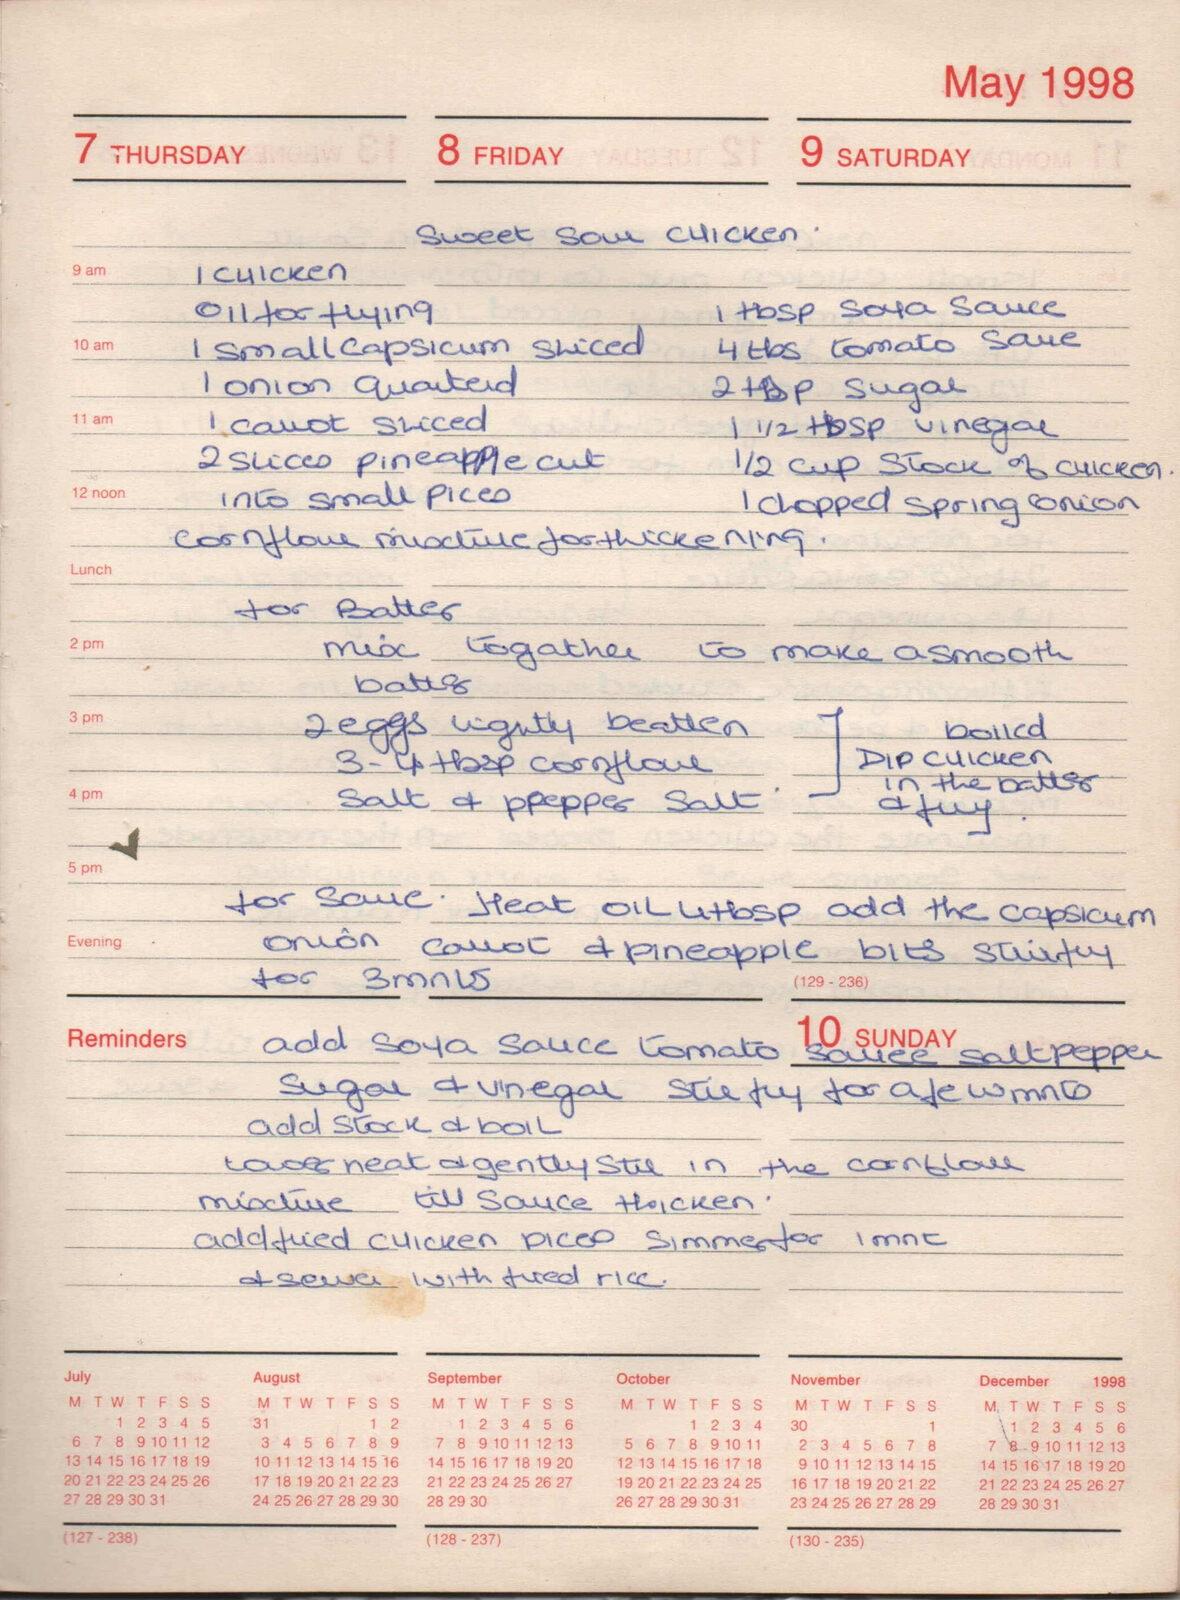 May 1998
7 THURSDAY 8 FRIDAY 9 SATURDAY
Sweet Sour Chicken.
9 am 1 chicken
Oil for frying 1 tbsp Soya Sauce
10 am 1 small capsicum sliced 4 tbs tomato Saue
1 onion Quarterd 2 tbsp Sugar
11 am 1 carrot sliced 1 1/2 tbsp vinegar
2 slices pineapple cut 1/2 cup Stock of chicken.
12 noon into small pices 1 chopped spring onion
cornflour mixture for thickening.
Lunch
for Batter
2 pm mix togather to make a smooth
batter
3 pm 2 eggs lightly beatten boiled
3-4 tbsp cornflour Dip chicken
in the batter
4 pm Salt & ppepper Salt. & fry.
5 pm
for Saue. Heat oil 4 tbsp add the capsicum
Evening onion carrot & pineapple bits stirfry
for 3 mnts (129 - 236)
Reminders 10 SUNDAY
add Soya Sauce tomato sauce salt pepper
Sugar & vinegar stir fry for a few mnts
add stock & boil
Lower heat & gently stir in the cornflour
mixture till Sauce thicken.
add fried chicken pices simmer for 1 mnt
& serve with fried rice.
July August September October November December 1998
M T W T F S S M T W T F S S M T W T F S S M T W T F S S M T W T F S S M T W T F S S
1 2 3 4 5 31 1 2 1 2 3 4 5 6 1 2 3 4 30 1 1 2 3 4 5 6
6 7 8 9 10 11 12 3 4 5 6 7 8 9 7 8 9 10 11 12 13 5 6 7 8 9 10 11 2 3 4 5 6 7 8 7 8 9 10 11 12 13
13 14 15 16 17 18 19 10 11 12 13 14 15 16 14 15 16 17 18 19 20 12 13 14 15 16 17 18 9 10 11 12 13 14 15 14 15 16 17 18 19 20
20 21 22 23 24 25 26 17 18 19 20 21 22 23 21 22 23 24 25 26 27 19 20 21 22 23 24 25 16 17 18 19 20 21 22 21 22 23 24 25 26 27
27 28 29 30 31 24 25 26 27 28 29 30 28 29 30 26 27 28 29 30 31 23 24 25 26 27 28 29 28 29 30 31
(127 - 238) (128 - 237) (130 - 235)